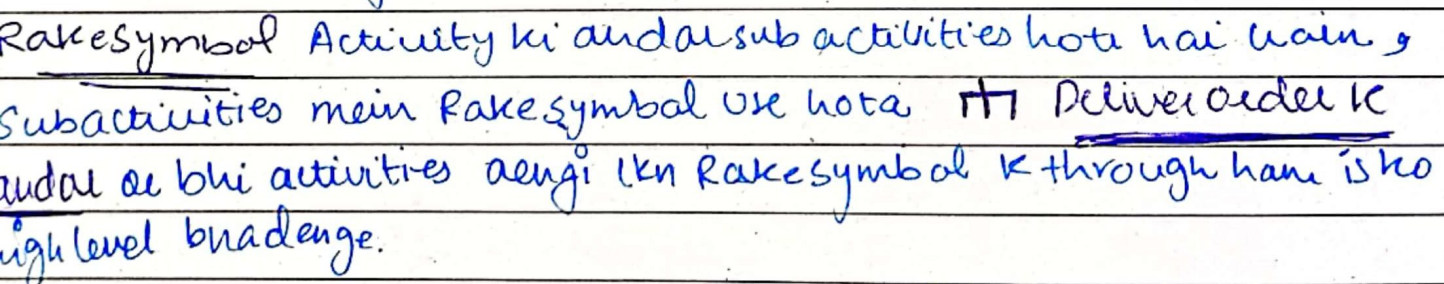 Rakesymbol Activity ki andar sub activities hote hai hain,
Subactivities mein Rakesymbol use hota Deliver order k
andar or bhi activities aengi lkn Rakesymbol k through ham isko
high level bnadenge.